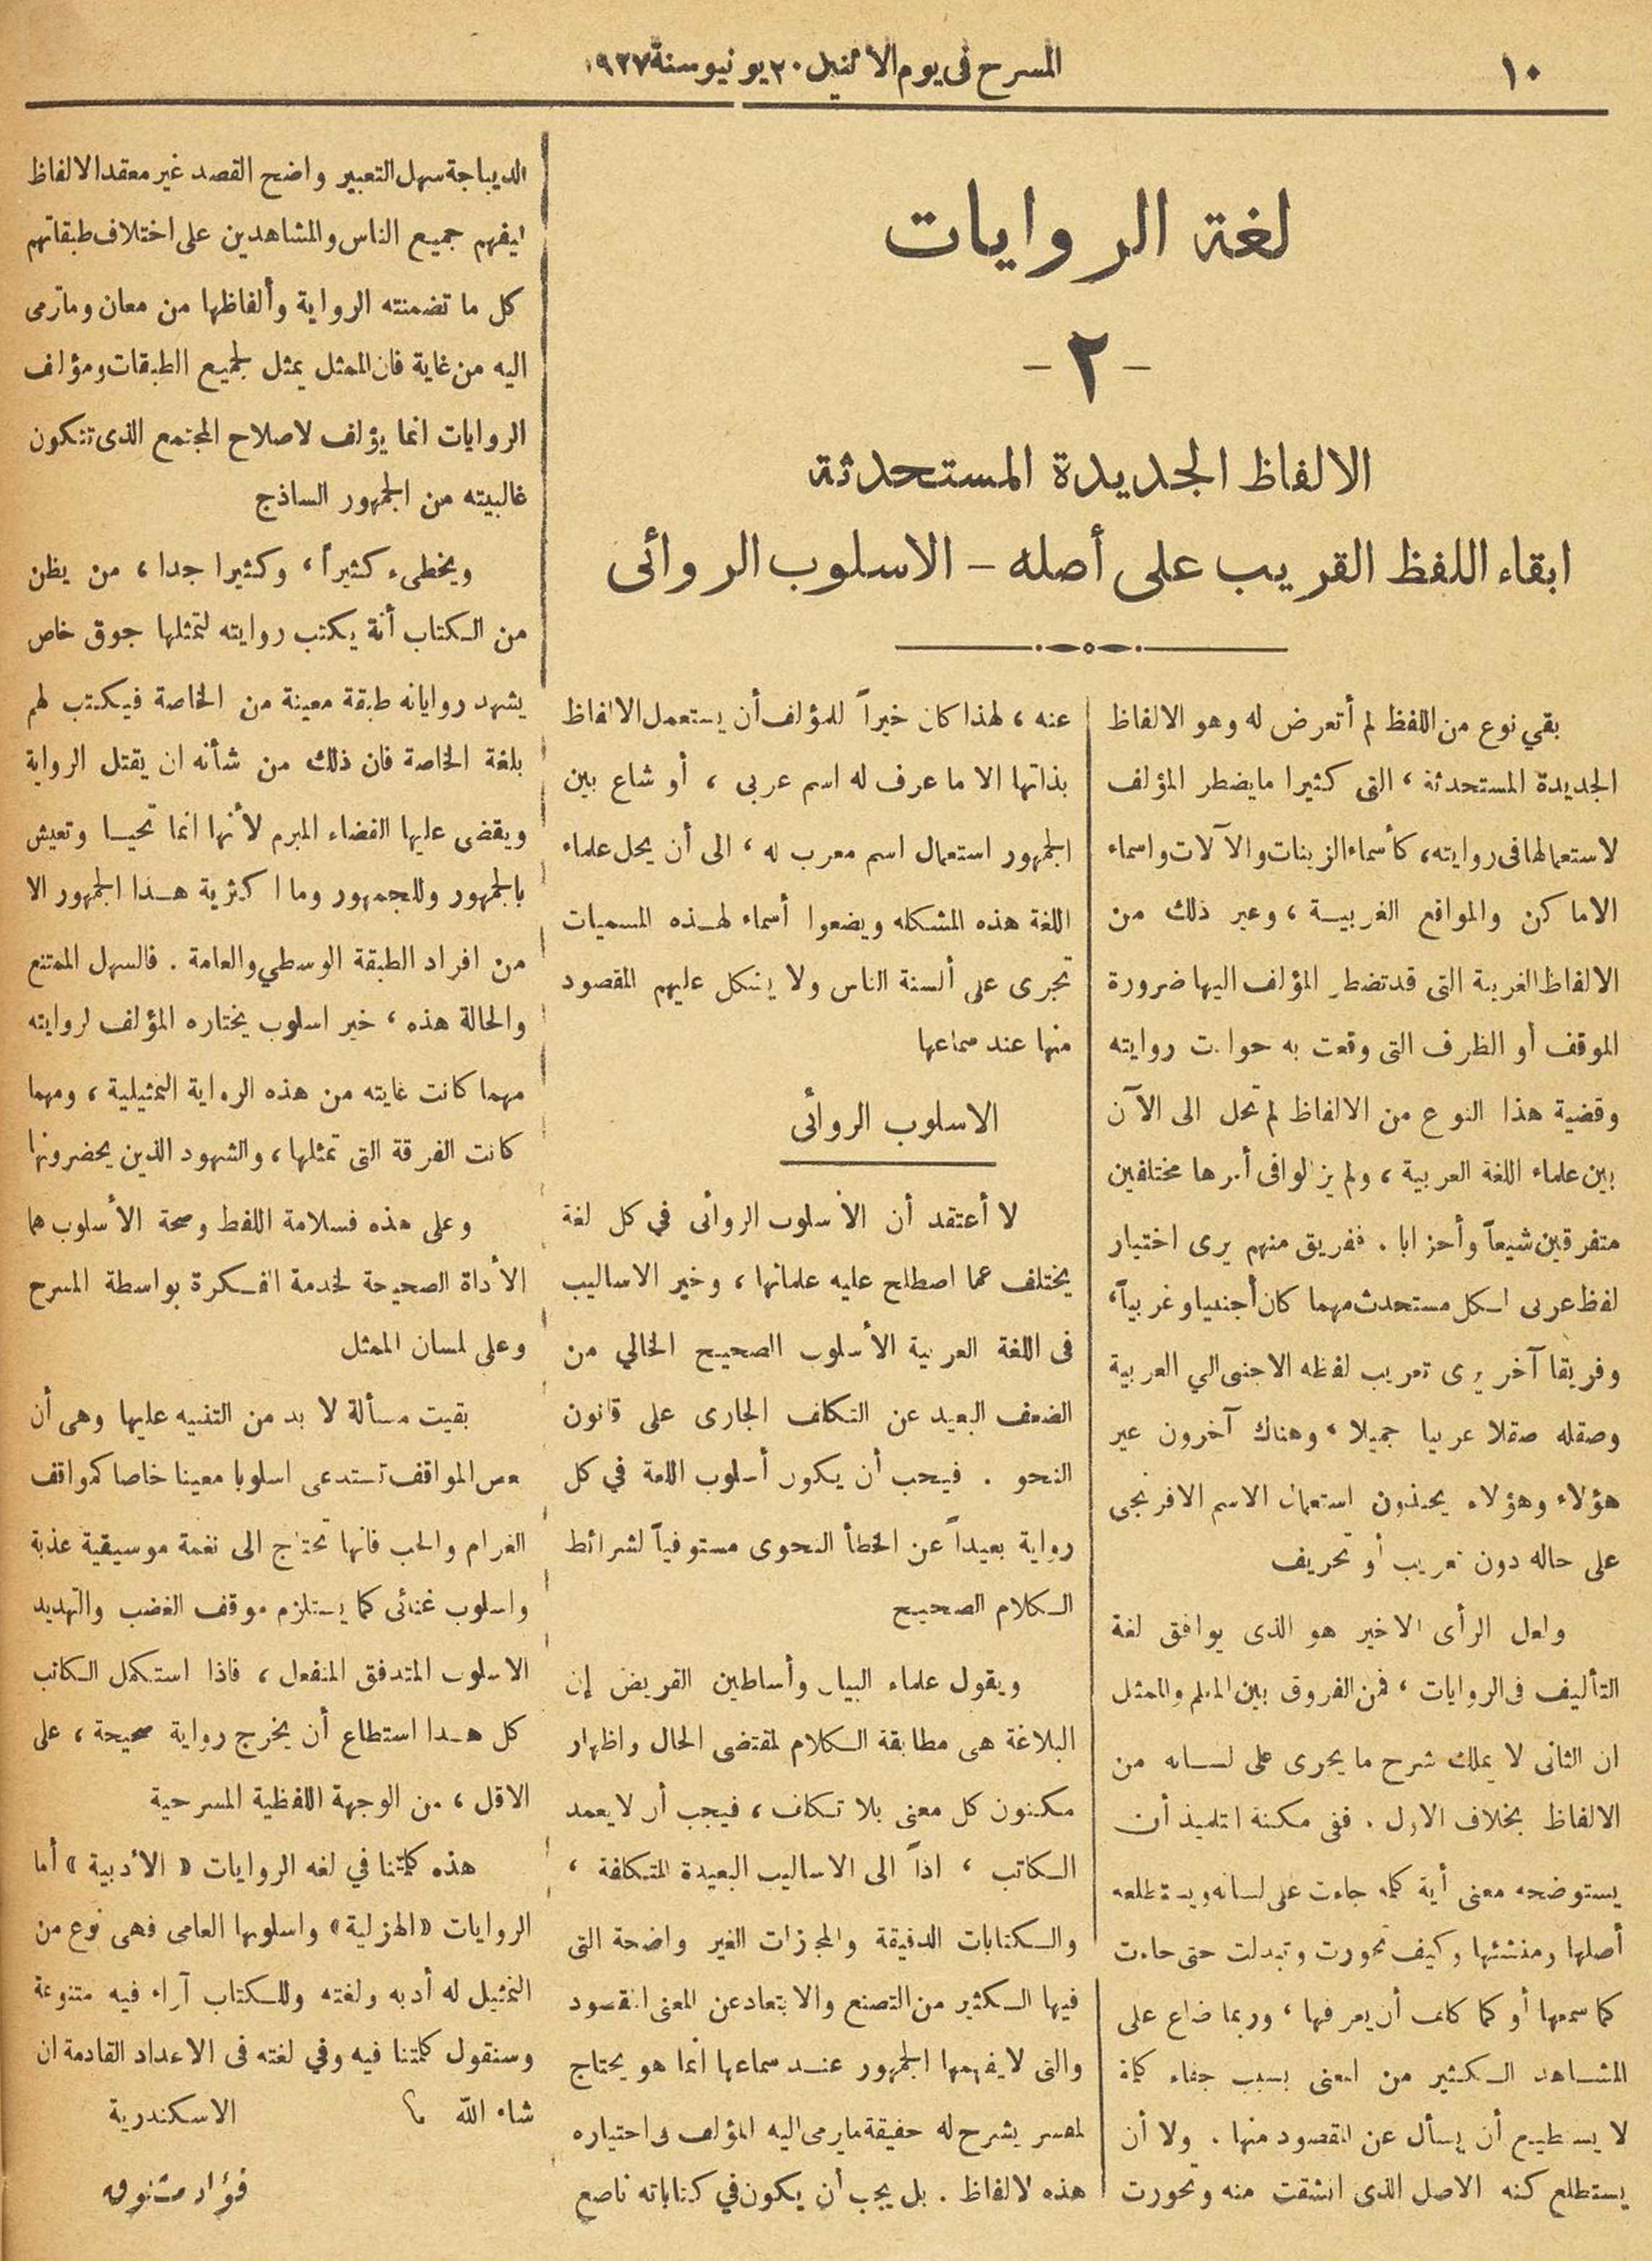 ١٠
المسرح فى يوم الاثنين ٢٠ يونيو سنة ١٩٢٧
لغة الروايات
- ٢ -
الالفاظ الجديدة المستحدثة
ابقاء اللفظ القريب على أصله - الاسلوب الروائى
بقي نوع من اللفظ لم أتعرض له وهو الالفاظ
الجديدة المستحدثة ، التى كثيرا ما يضطر المؤلف
لاستعمالها فى روايته، كأسماء الزينات والآلات واسماء
الاماكن والمواقع الغربية ، وغير ذلك من
الالفاظ الغريبة التى قد تضطر المؤلف اليها ضرورة
الموقف أو الظرف التى وقعت به حوادث روايته
وقضية هذا النوع من الالفاظ لم تحل الى الآن
بين علماء اللغة العربية ، ولم يزالوا فى أمرها مختلفين
متفرقين شيعاً وأحزابا . ففريق منهم يرى اختيار
لفظ عربى لكل مستحدث مهما كان أجنبيا وغربياً،
وفريقا آخر يرى تعريب لفظه الاجنبى الي العربية
وصقله صقلا عربيا جميلا ، وهناك آخرون غير
هؤلاء وهؤلاء يحبذون استعمال الاسم الافرنجى
على حاله دون تعريب أو تحريف
ولعل الرأى الاخير هو الذى يوافق لغة
التأليف فى الروايات ، فمن الفروق بين المعلم والممثل
ان الثانى لا يملك شرح ما يجرى على لسانه من
الالفاظ بخلاف الاول . ففى مكنة التلميذ أن
يستوضحه معنى أية كلمه جاءت على لسانه ويستطلعه
أصلها ومنشئها وكيف تحورت وتبدلت حتى جاءت
كما سمعها أو كما كلف أن يعرفها ، وربما ضاع على
المشاهد الكثير من المعنى بسبب جفاء كلمة
لا يستطيع أن يسأل عن المقصود منها . ولا أن
يستطلع كنه الاصل الذى انشقت منه وتحورت
عنه ، لهذا كان خيراً للمؤلف أن يستعمل الالفاظ
بذاتها الا ما عرف له اسم عربى ، أو شاع بين
الجمهور استعمال اسم معرب له ، الى أن يحل علماء
اللغة هذه المشكله ويضعوا أسماء لهذه المسميات
تجرى على ألسنة الناس ولا يشكل عليهم المقصود
منها عند سماعها
الاسلوب الروائى
لا أعتقد أن الأسلوب الروائى في كل لغة
يختلف عما اصطلح عليه علمائها ، وخير الاساليب
فى اللغة العربية الأسلوب الصحيح الخالي من
الضعف البعيد عن التكلف الجارى على قانون
النحو . فيجب أن يكون أسلوب اللغة في كل
رواية بعيداً عن الخطأ النحوى مستوفياً لشرائط
الكلام الصحيح
ويقول علماء البيان وأساطين القريض إن
البلاغة هى مطابقة الكلام لمقتضى الحال واظهار
مكنون كل معنى بلا تكلف ، فيجب أن لا يعمد
الكاتب ، اذاً الى الاساليب البعيدة المتكلفة ،
والكتابات الدقيقة والمجزات الغير واضحة التى
فيها الكثير من التصنع والابتعاد عن المعنى المقصود
والتى لا يفهمها الجمهور عند سماعها انما هو يحتاج
لمفسر يشرح له حقيقة ما يرمى اليه المؤلف فى اختياره
هذه لالفاظ . بل يجب أن يكون في كتاباته ناصع
الديباجة سهل التعبير واضح القصد غير معقد الالفاظ
ليفهم جميع الناس والمشاهدين على اختلاف طبقاتهم
كل ما تضمنته الرواية وألفاظها من معان وما ترمى
اليه من غاية فان الممثل يمثل لجميع الطبقات ومؤلف
الروايات انما يؤلف لاصلاح المجتمع الذى تتكون
غالبيته من الجمهور الساذج
ويخطىء كثيراً ، وكثيرا جدا ، من يظن
من الكتاب أنة يكتب روايته لتمثلها جوق خاص
يشهد رواياته طبقة معينة من الخاصة فيكتب لهم
بلغة الخاصة فان ذلك من شأنه ان يقتل الرواية
ويقضى عليها القضاء المبرم لأنها انما تحيا وتعيش
بالجمهور وللجمهور وما اكثرية هذا الجمهور الا
من افراد الطبقة الوسطي والعامة . فالسهل الممتنع
والحالة هذه ، خير اسلوب يختاره المؤلف لروايته
مهما كانت غايته من هذه الرواية التمثيلية ، ومهما
كانت الفرقة التى تمثلها ، والشهود الذين يحضرونها
وعلى هذه فسلامة اللفظ وصحة الأسلوب هما
الأداة الصحيحة لخدمة الفكرة بواسطة المسرح
وعلى لسان الممثل
بقيت مسألة لا بد من التنبيه عليها وهى أن
بعض المواقف تستدعى اسلوبا معينا خاصا كمواقف
الغرام والحب فانها تحتاج الى نغمة موسيقية عذبة
واسلوب غنائى كما يستلزم موقف الغضب والتهديد
الاسلوب المتدفق المنفعل ، فاذا استكمل الكاتب
كل هذا استطاع أن يخرج رواية صحيحة ، على
الاقل ، من الوجهة اللفظية المسرحية
هذه كلمتنا في لغه الروايات « الأدبية » أما
الروايات «الهزلية» واسلوبها العامى فهى نوع من
التمثيل له أدبه ولغته وللكتاب آراء فيه متنوعة
وسنقول كلمتنا فيه وفي لغته فى الاعداد القادمة ان
شاء الله ؟
الاسكندرية
فؤاد